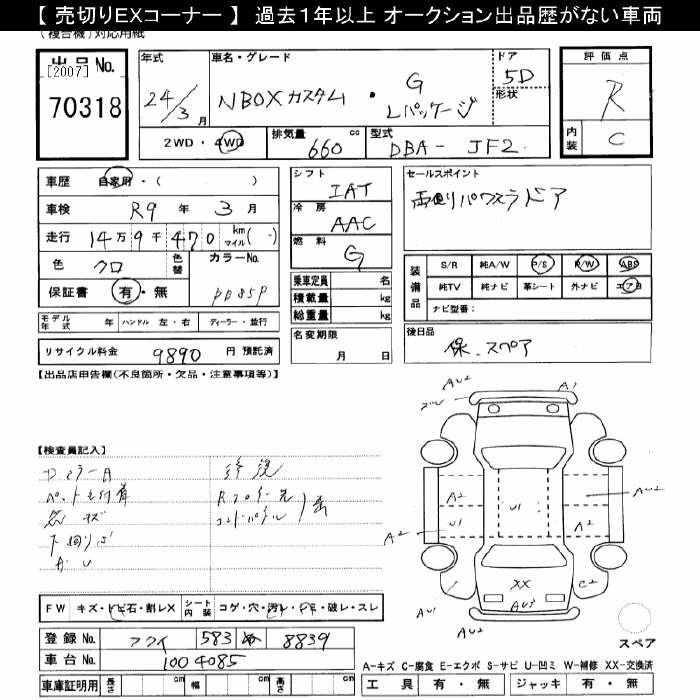 【 売切りEXコーナー 】 過去１年以上 オークション出品歴がない車両
(複合機)対応用紙
出品No.
[2007]
70318
年式
24/3 月
車名・グレード
NBOXカスタム ・ G Lパッケージ
ドア
5D
形状
評価点
R
内装
C
2WD・4WD
排気量 660 cc
型式 DBA- JF2
車歴 自家用・( )
車検 R9 年 3 月
走行 14万9千470 km マイル( )
色 クロ 色替
カラーNo.
保証書 有・無
シフト
IAT
冷房
AAC
燃料
G
乗車定員 名
積載量 kg
総重量 kg
セールスポイント
両側パワスラドア
装備品
S/R 純A/W P/S P/W ABS
純TV 純ナビ 革シート 外ナビ エアB
ナビ型番:
モデル年式 年 ハンドル 左・右 ディーラー・並行
リサイクル料金 9890 円 預託済
名変期限
月 日
後日品
保.スペア
【出品店申告欄(不良箇所・欠品・注意事項等)】
【検査員記入】
修復
下回りサビ
AU2
A1
A2
U1
AU2
A2
U1
A2
A2
XX
C2
AU3
AU1
AU2
スペア
FW キズ・トビ石・割レX シート内装 コゲ・穴・汚レ・破レ・スレ
登録No. 583 8839
車台No. 1004085
車庫証明用 長さ cm 幅 cm 高さ cm
A-キズ C-腐食 E-エクボ S-サビ U-凹ミ W-補修 XX-交換済
工具 有・無 ジャッキ 有・無